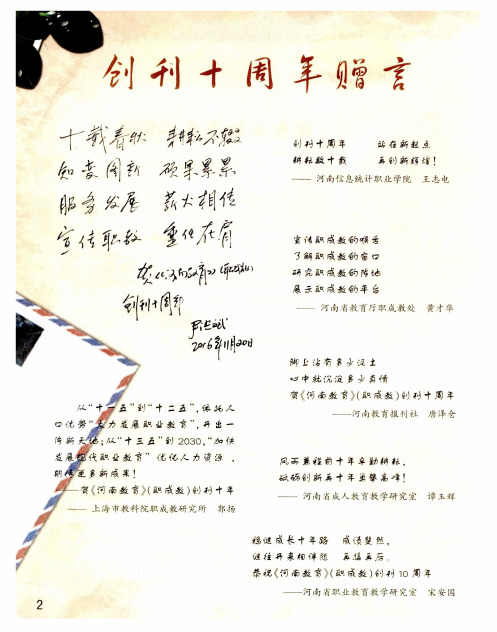 创刊十周年赠言
十载春秋 耕耘不辍
知变图新 硕果累累
服务发展 薪火相传
宣传职教 重任在肩
创刊十周年
2016年11月20日
创刊十周年 站在新起点
耕耘数十载 再创新辉煌！
—— 河南信息统计职业学院 王志电
宣传职成教的喉舌
了解职成教的窗口
研究职成教的阵地
展示职成教的平台
—— 河南省教育厅职成教处 黄才华
脚上沾有多少泥土
心中就沉淀多少真情
贺《河南教育》(职成教)创刊十周年
——河南教育报刊社 唐泽仓
从“十一五”到“十二五”，依托人
口优势“大力发展职业教育”，开出一
阵新天地；从“十三五”到2030，“加快
发展现代职业教育”优化人力资源，
期待更多新成果！
——贺《河南教育》(职成教)创刊十年
—— 上海市教科院职成教研究所 郭扬
风雨兼程前十年辛勤耕耘，
砥砺创新再十年勇攀高峰！
—— 河南省成人教育教学研究室 谭玉辉
稳健成长十年路 成绩斐然，
继往开来相伴随 再接再厉。
恭祝《河南教育》(职成教)创刊10周年
——河南省职业教育教学研究室 宋安国
2